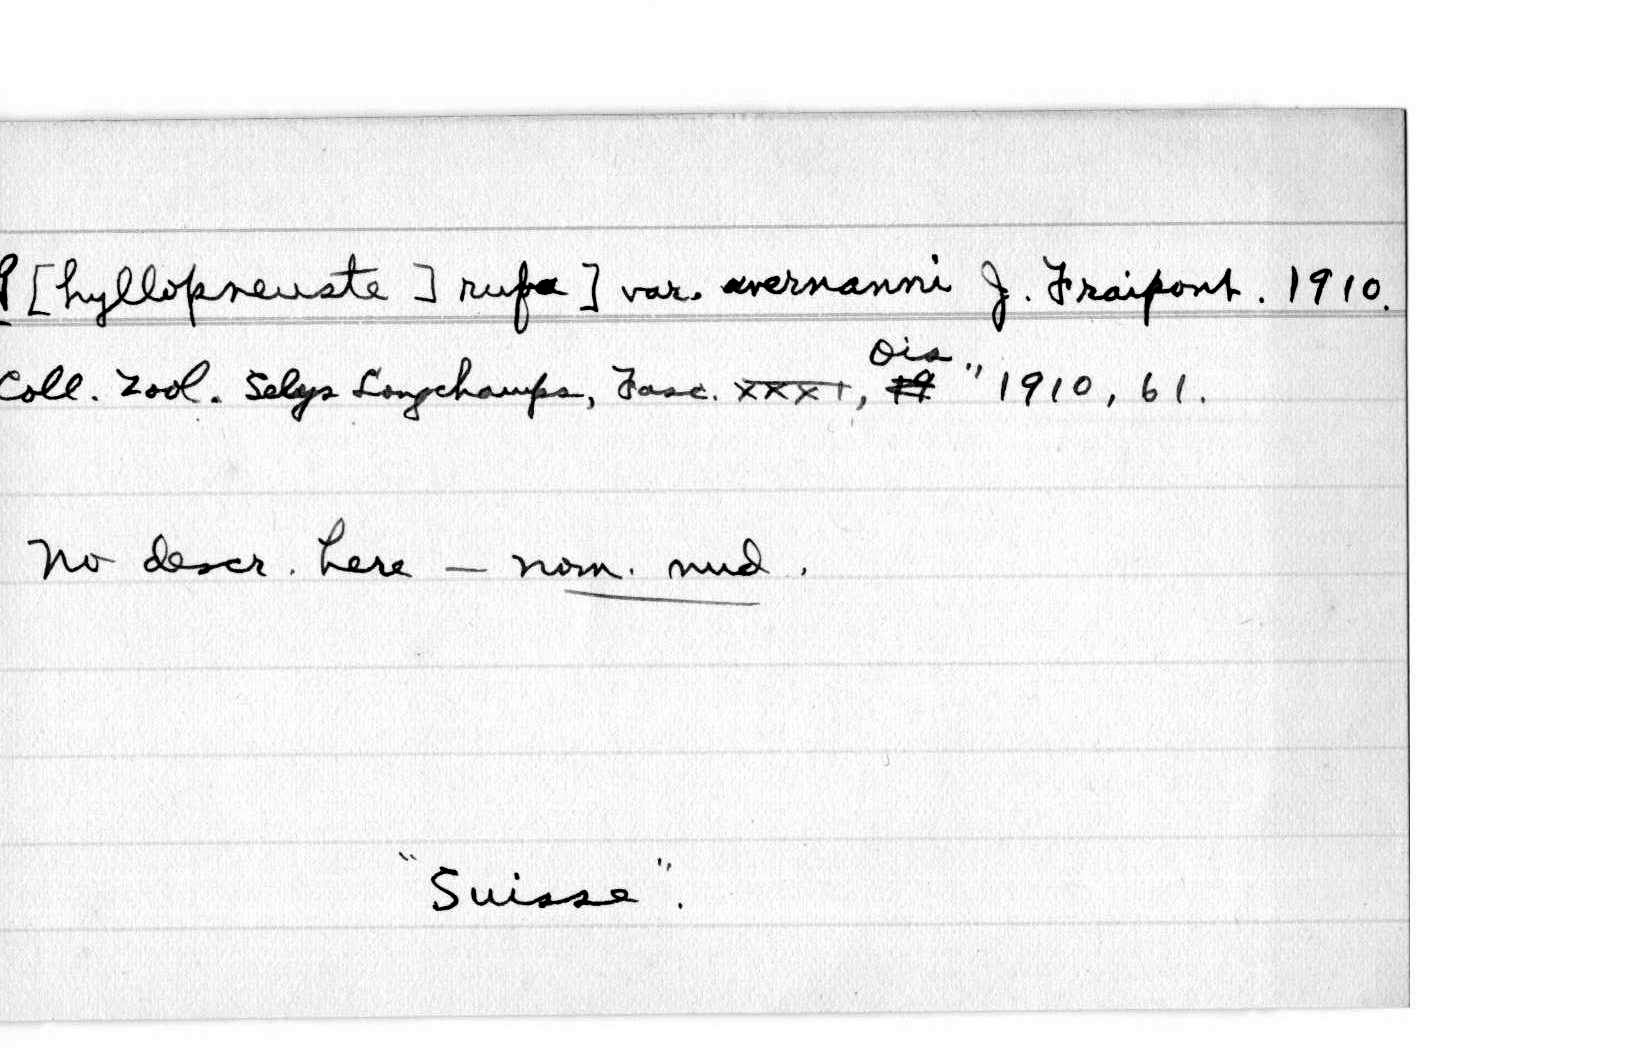 P[hyllopneuste] rufa] var. avernanni J. Fraipont. 1910.
Coll. Zool. Selys Longchamps, Fasc. XXXI, Ois." 1910, 61.
No descr. here — nom. nud.
"Suisse".